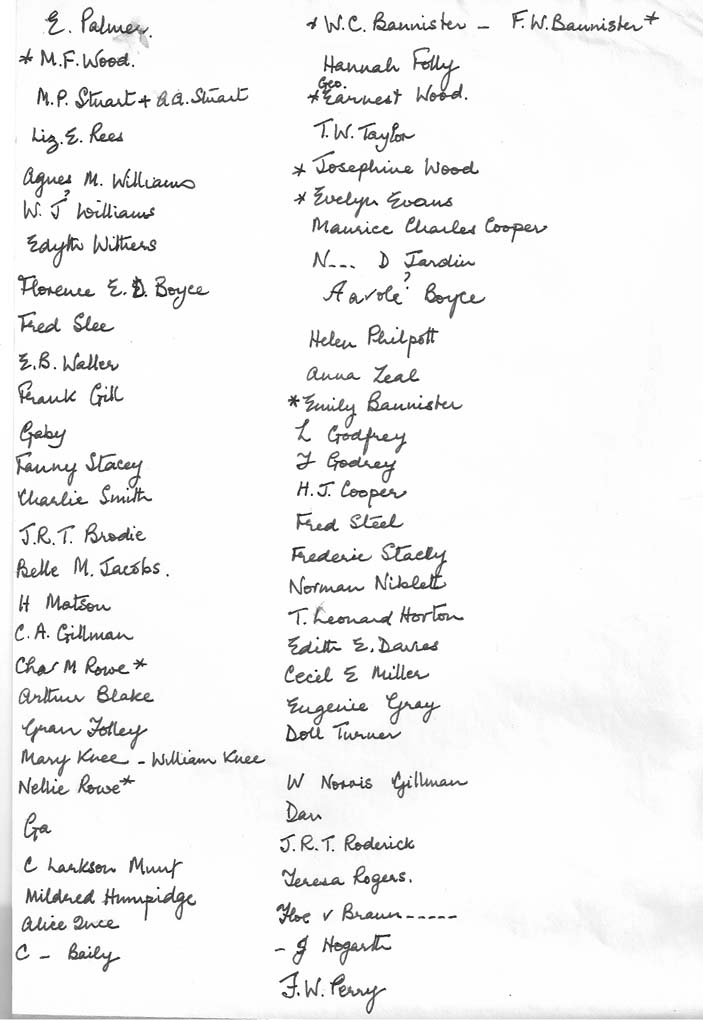 E. Palmer.
* M.F. Wood.
M.P. Stuart + A.A. Stuart
Liz. E. Rees
Agnes M. Williams
W. J? Williams
Edyth Withers
Florence E. D. Boyce
Fred Slee
E.B. Waller
Frank Gill
Gaby
Fanny Stacey
Charlie Smith
J.R.T. Brodie
Belle M. Jacobs.
H Matson
C. A. Gillman
Chas M Rowe *
Arthur Blake
Gran Folley
Mary Knee - William Knee
Nellie Rowe *
Ga
C Larkson Munt
Mildred Humpidge
Alice Ince
C - Baily
* W.C. Bannister - F.W. Bannister *
Hannah Folly
Geo.
* Earnest Wood.
T.W. Taylor
* Josephine Wood
* Evelyn Evans
Maurice Charles Cooper
N--- D Jardin
Aavole? Boyce
Helen Philpott
Anna Zeal
* Emily Bannister
L Godfrey
F Godrey
H.J. Cooper
Fred Steel
Frederic Stacey
Norman Niblett
T. Leonard Horton
Edith E. Davies
Cecil E Miller
Eugenie Gray
Doll Turner
W Norris Gillman
Dan
J.R.T. Roderick
Teresa Rogers.
Floe v Braun-----
- J Hogarth
F.W. Perry